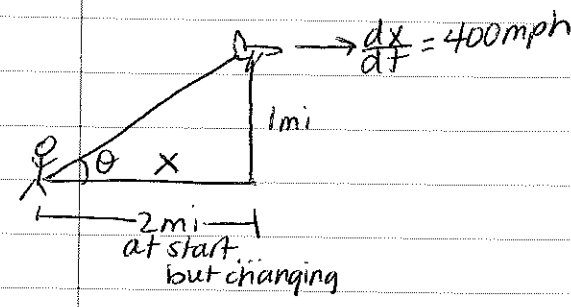 dx/dt = 400mph
1mi
θ x
2mi
at start...
but changing